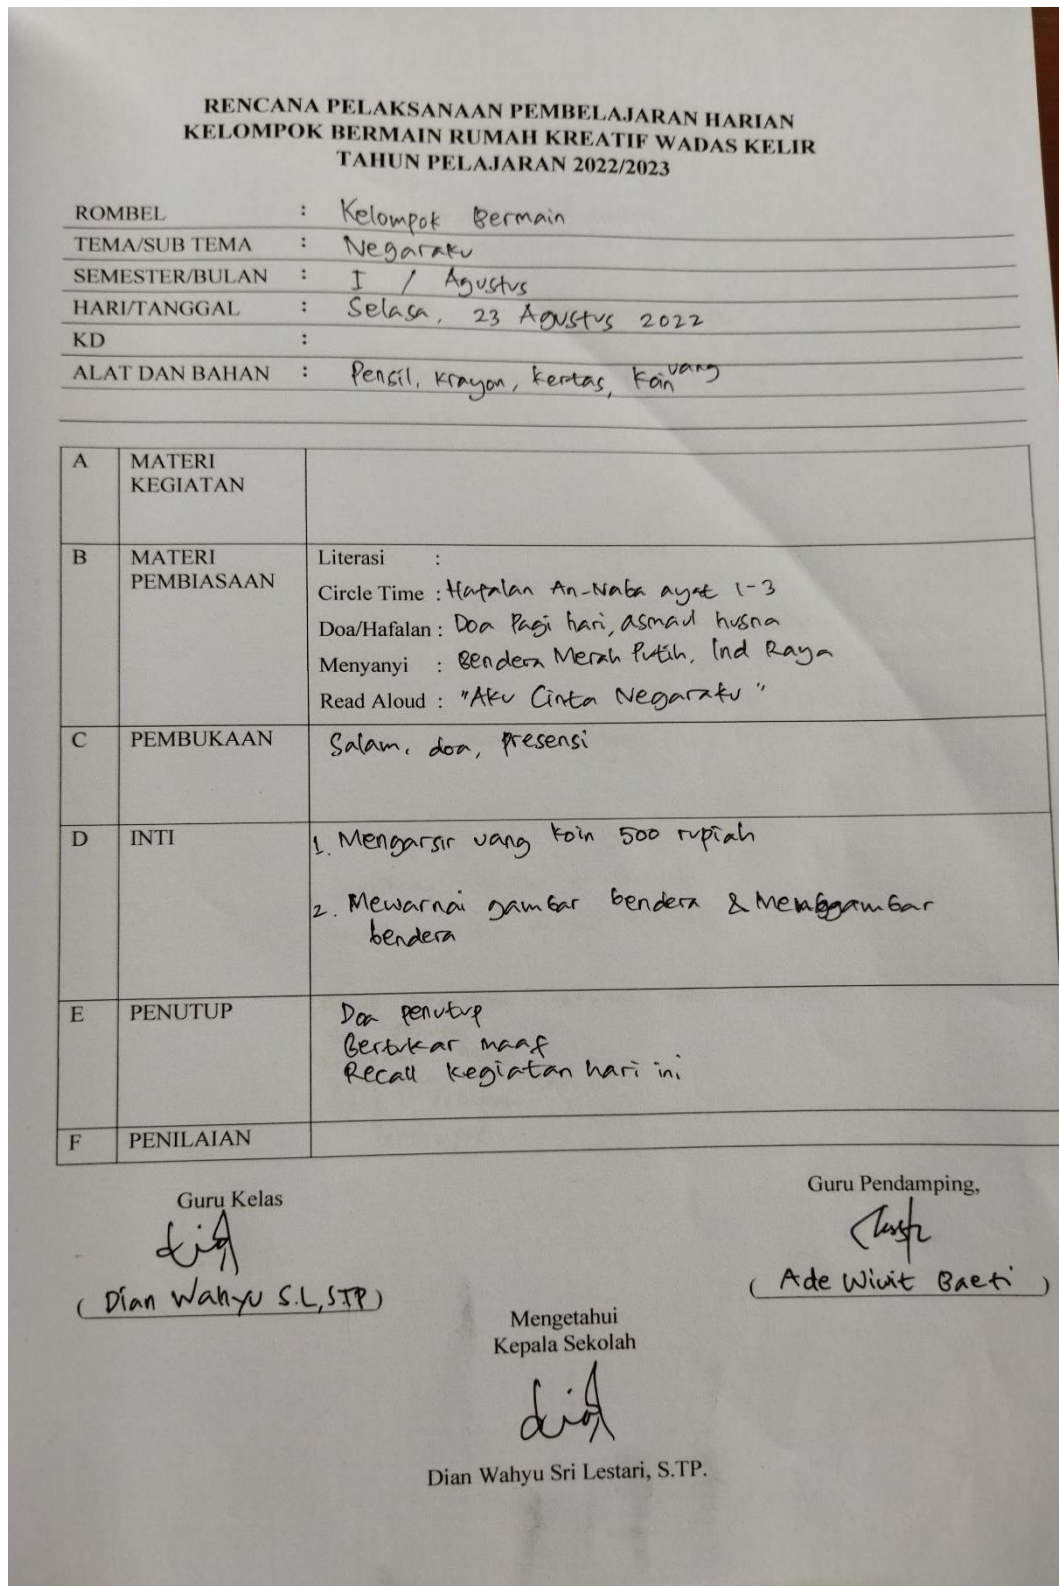 RENCANA PELAKSANAAN PEMBELAJARAN HARIAN
KELOMPOK BERMAIN RUMAH KREATIF WADAS KELIR
TAHUN PELAJARAN 2022/2023
ROMBEL : Kelompok Bermain
TEMA/SUB TEMA : Negaraku
SEMESTER/BULAN : I / Agustus
HARI/TANGGAL : Selasa, 23 Agustus 2022
KD :
ALAT DAN BAHAN : Pensil, krayon, kertas, koin uang
A MATERI
KEGIATAN
B MATERI
PEMBIASAAN
Literasi :
Circle Time : Hafalan An-Naba ayat 1-3
Doa/Hafalan : Doa Pagi hari, asmaul husna
Menyanyi : Bendera Merah Putih, Ind Raya
Read Aloud : "Aku Cinta Negaraku"
C PEMBUKAAN Salam, doa, presensi
D INTI 1. Mengarsir uang koin 500 rupiah
2. Mewarnai gambar bendera & Menggambar
bendera
E PENUTUP Doa penutup
Bertukar maaf
Recall kegiatan hari ini
F PENILAIAN
Guru Kelas
(Dian Wahyu S.L, S.TP)
Guru Pendamping,
(Ade Wiwit Baeti)
Mengetahui
Kepala Sekolah
Dian Wahyu Sri Lestari, S.TP.